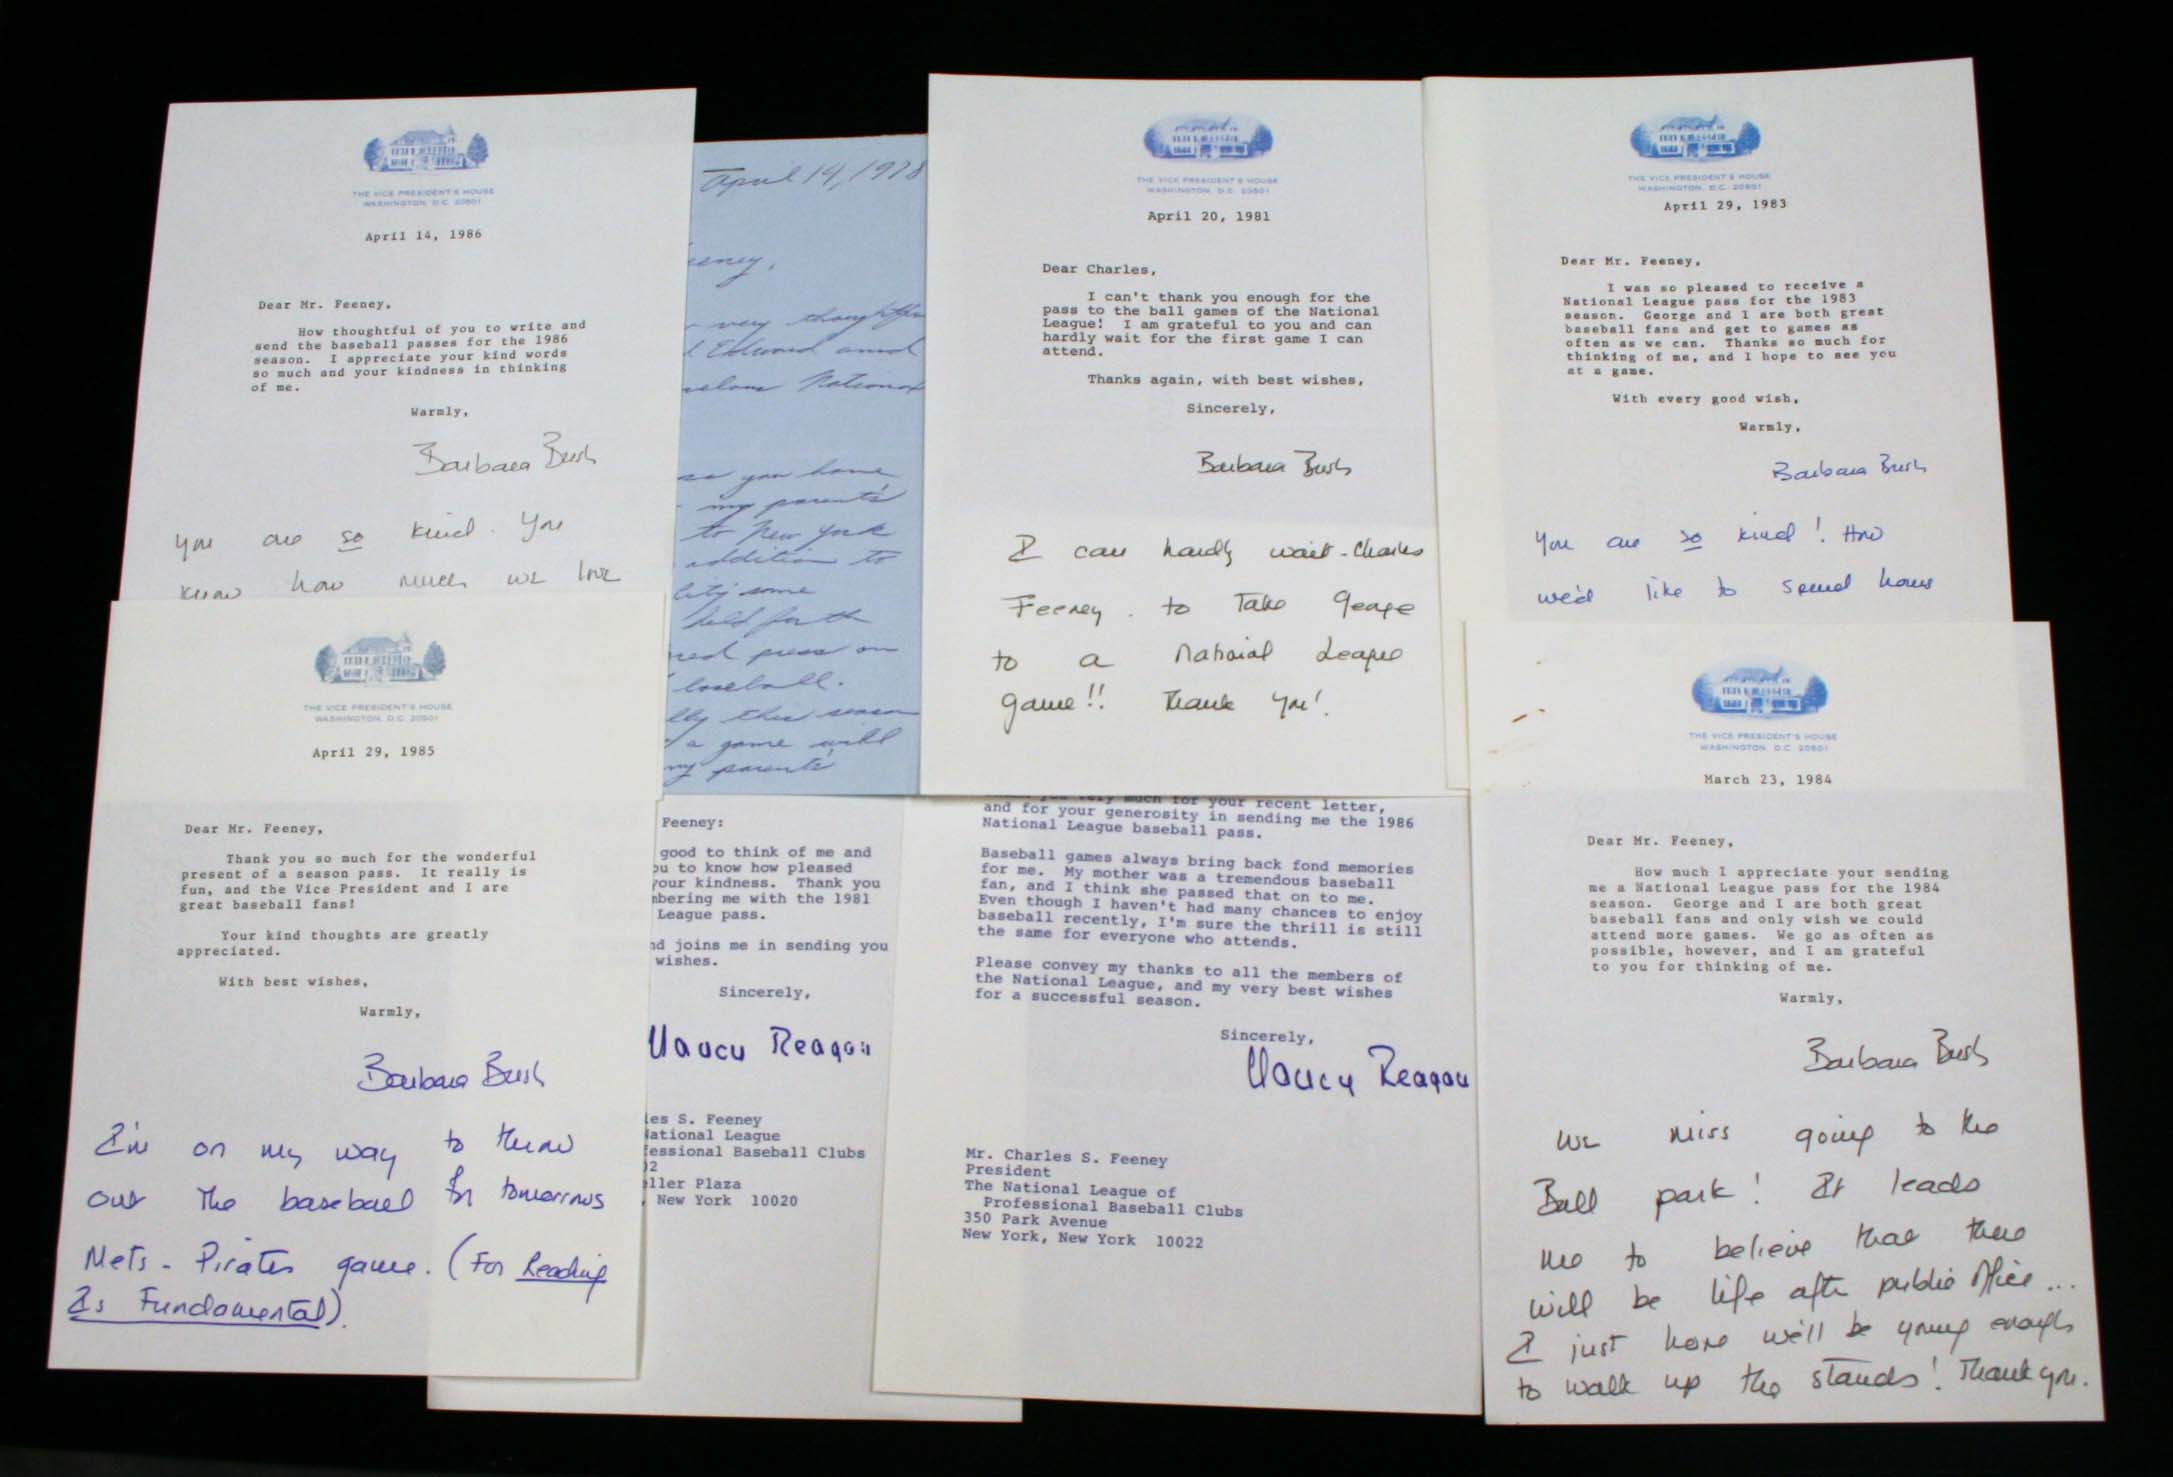 THE VICE PRESIDENT'S HOUSE
WASHINGTON, D.C. 20501
April 14, 1986
Dear Mr. Feeney,
How thoughtful of you to write and
send the baseball passes for the 1986
season. I appreciate your kind words
so much and your kindness in thinking
of me.
Warmly,
Barbara Bush
You are so kind. You
know how much we love
April 14, 1978
eeney,
very thoughtfu
d Edward and
National
so you have
my parents'
to New York
addition to
lity some
held for the
red press on
baseball.
lly this season
d a game will
my parents'
THE VICE PRESIDENT'S HOUSE
WASHINGTON, D.C. 20501
April 20, 1981
Dear Charles,
I can't thank you enough for the
pass to the ball games of the National
League! I am grateful to you and can
hardly wait for the first game I can
attend.
Thanks again, with best wishes,
Sincerely,
Barbara Bush
I can hardly wait - Charles
Feeney. to take George
to a National League
game!! Thank you!
THE VICE PRESIDENT'S HOUSE
WASHINGTON, D.C. 20501
April 29, 1983
Dear Mr. Feeney,
I was so pleased to receive a
National League pass for the 1983
season. George and I are both great
baseball fans and get to games as
often as we can. Thanks so much for
thinking of me, and I hope to see you
at a game.
With every good wish,
Warmly,
Barbara Bush
You are so kind! How
we'd like to spend hours
THE VICE PRESIDENT'S HOUSE
WASHINGTON, D.C. 20501
April 29, 1985
Dear Mr. Feeney,
Thank you so much for the wonderful
present of a season pass. It really is
fun, and the Vice President and I are
great baseball fans!
Your kind thoughts are greatly
appreciated.
With best wishes,
Warmly,
Barbara Bush
I'm on my way to throw
out the baseball for tomorrows
Mets - Pirates game. (For Reading
Is Fundamental).
Feeney:
good to think of me and
ou to know how pleased
your kindness. Thank you
mbering me with the 1981
League pass.
nd joins me in sending you
wishes.
Sincerely,
Nancy Reagan
les S. Feeney
National League
fessional Baseball Clubs
02
eller Plaza
, New York 10020
you very much for your recent letter,
and for your generosity in sending me the 1986
National League baseball pass.
Baseball games always bring back fond memories
for me. My mother was a tremendous baseball
fan, and I think she passed that on to me.
Even though I haven't had many chances to enjoy
baseball recently, I'm sure the thrill is still
the same for everyone who attends.
Please convey my thanks to all the members of
the National League, and my very best wishes
for a successful season.
Sincerely,
Nancy Reagan
Mr. Charles S. Feeney
President
The National League of
Professional Baseball Clubs
350 Park Avenue
New York, New York 10022
THE VICE PRESIDENT'S HOUSE
WASHINGTON, D.C. 20501
March 23, 1984
Dear Mr. Feeney,
How much I appreciate your sending
me a National League pass for the 1984
season. George and I are both great
baseball fans and only wish we could
attend more games. We go as often as
possible, however, and I am grateful
to you for thinking of me.
Warmly,
Barbara Bush
We miss going to the
Ball park! It leads
me to believe that there
will be life after public office...
I just hope we'll be young enough
to walk up the stands! Thank you.